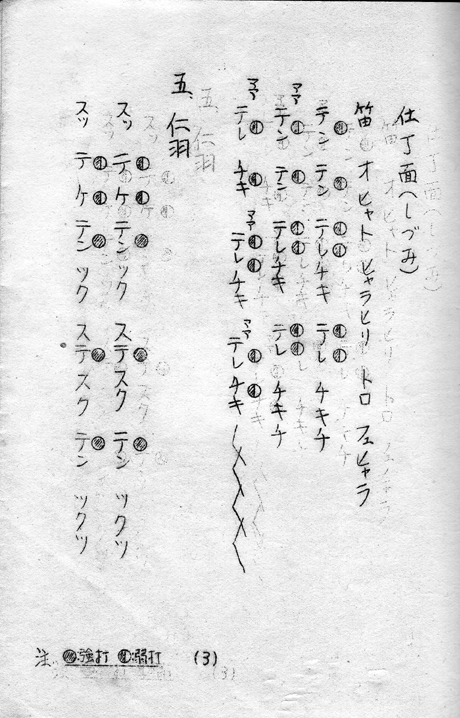 仕丁面(しづみ)
笛 オヒャト ヒャラヒリ トロ フェヒャラ
テン テン テレチキ テレ チキチ
アア テン テン テレチキ テレ チキチ
アア テレ チキ アア テレチキ アア テレ チキ
五、仁羽
スッ テケテンツク ステスク テン ツクツ
スッ テケテンツク ステスク テン ツクツ
注 強打 弱打 (3)